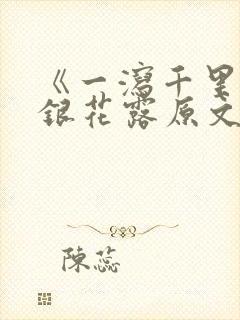 《一瀉千里
銀花露原文
陳蕊